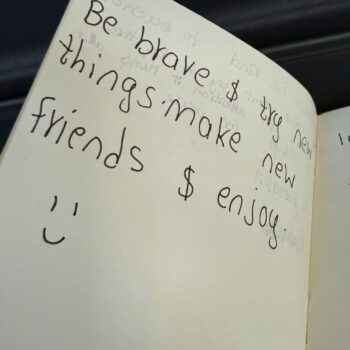 Be brave $ try new
things. make new
friends $ enjoy.